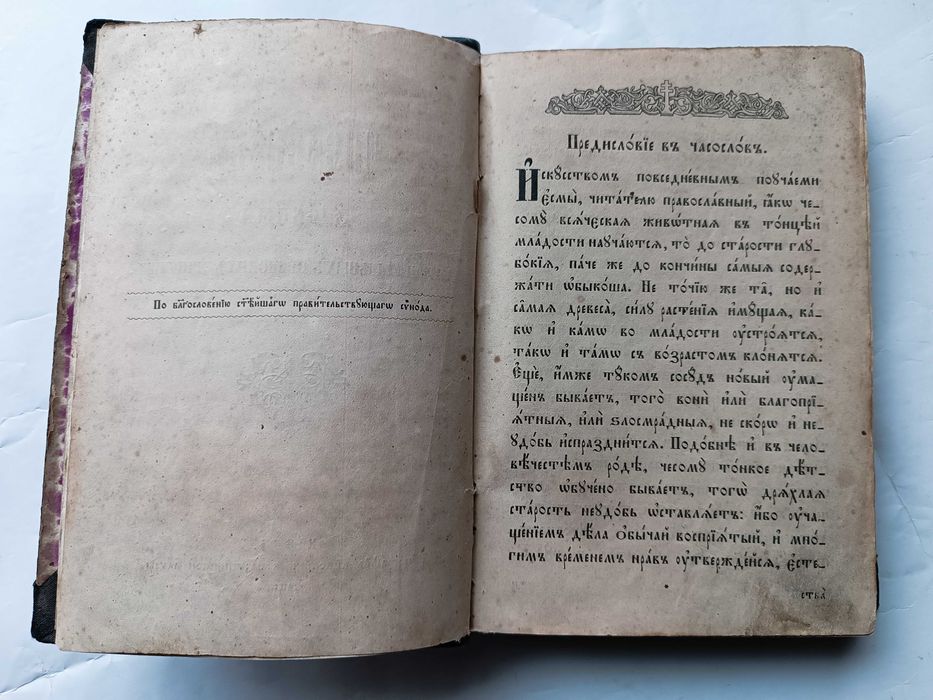 По блгⷭ҇ословенію ст҃ѣ́йшагѡ прави́тельствующагѡ сѵно́да.
Предисло́вїе въ часосло́въ.
И҆скꙋ́сствомъ повседне́внымъ поꙋча́еми
є҆смы̀, чита́телю правосла́вный, ꙗ҆́кѡ че-
сомꙋ̀ всѧ́ческаѧ живѡ́тнаѧ въ то́нцѣй
мла́дости наꙋча́ютсѧ, то̀ до ста́рости глꙋ-
бо́кїѧ, па́че же до кончи́ны са́мыѧ содер-
жа́ти ѡ҆быко́ша. Не то́чїю же та̑, но и҆
са̑маѧ древеса̀, си́лꙋ расте́нїѧ и҆мꙋ́щаѧ, ка́-
кѡ и҆ ка́мѡ во мла́дости ᲂу҆строѧ́тсѧ,
та́кѡ и҆ та́мѡ съ во́зрастомъ клонѧ́тсѧ.
Є҆щѐ, и҆́мже тꙋ́комъ сосꙋ́дъ но́вый ᲂу҆ма-
ще́нъ быва́етъ, того̀ вонѝ и҆лѝ благопрї-
ѧ́тныѧ, и҆лѝ ѕлосмра́дныѧ, не ско́рѡ и҆ не-
ꙋдо́бь и҆спраздни́тсѧ. Подо́бнѣ и҆ въ чело-
вѣ́честѣмъ ро́дѣ, чесомꙋ̀ то́нкое дѣ́т-
ство ѡ҆бꙋче́но быва́етъ, тогѡ̀ дрѧ́хлаѧ
ста́рость неꙋдо́бь ѡ҆ставлѧ́етъ: и҆́бо ᲂу҆ча-
ще́нїемъ дѣ́ла ѻ҆бы́чай воспрїѧ́тый, и҆ мно́-
гимъ вре́менемъ нра́въ ᲂу҆твержде́йсѧ, є҆сте-
ства̀